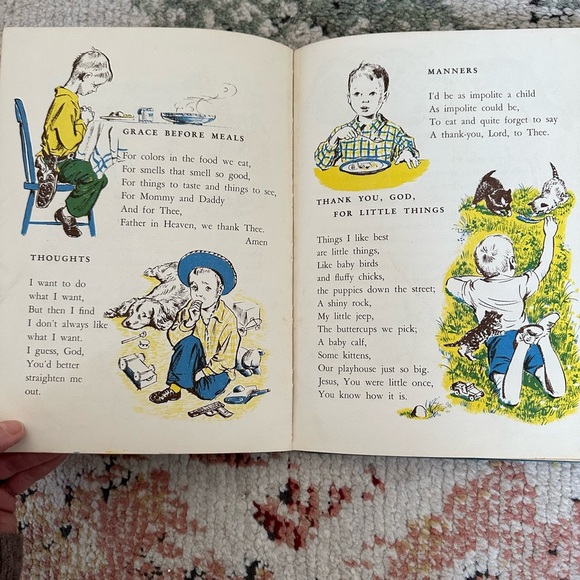 GRACE BEFORE MEALS
For colors in the food we eat,
For smells that smell so good,
For things to taste and things to see,
For Mommy and Daddy
And for Thee,
Father in Heaven, we thank Thee.
Amen
THOUGHTS
I want to do
what I want,
But then I find
I don't always like
what I want.
I guess, God,
You'd better
straighten me
out.
MANNERS
I'd be as impolite a child
As impolite could be,
To eat and quite forget to say
A thank-you, Lord, to Thee.
THANK YOU, GOD,
FOR LITTLE THINGS
Things I like best
are little things,
Like baby birds
and fluffy chicks,
the puppies down the street;
A shiny rock,
My little jeep,
The buttercups we pick;
A baby calf,
Some kittens,
Our playhouse just so big.
Jesus, You were little once,
You know how it is.